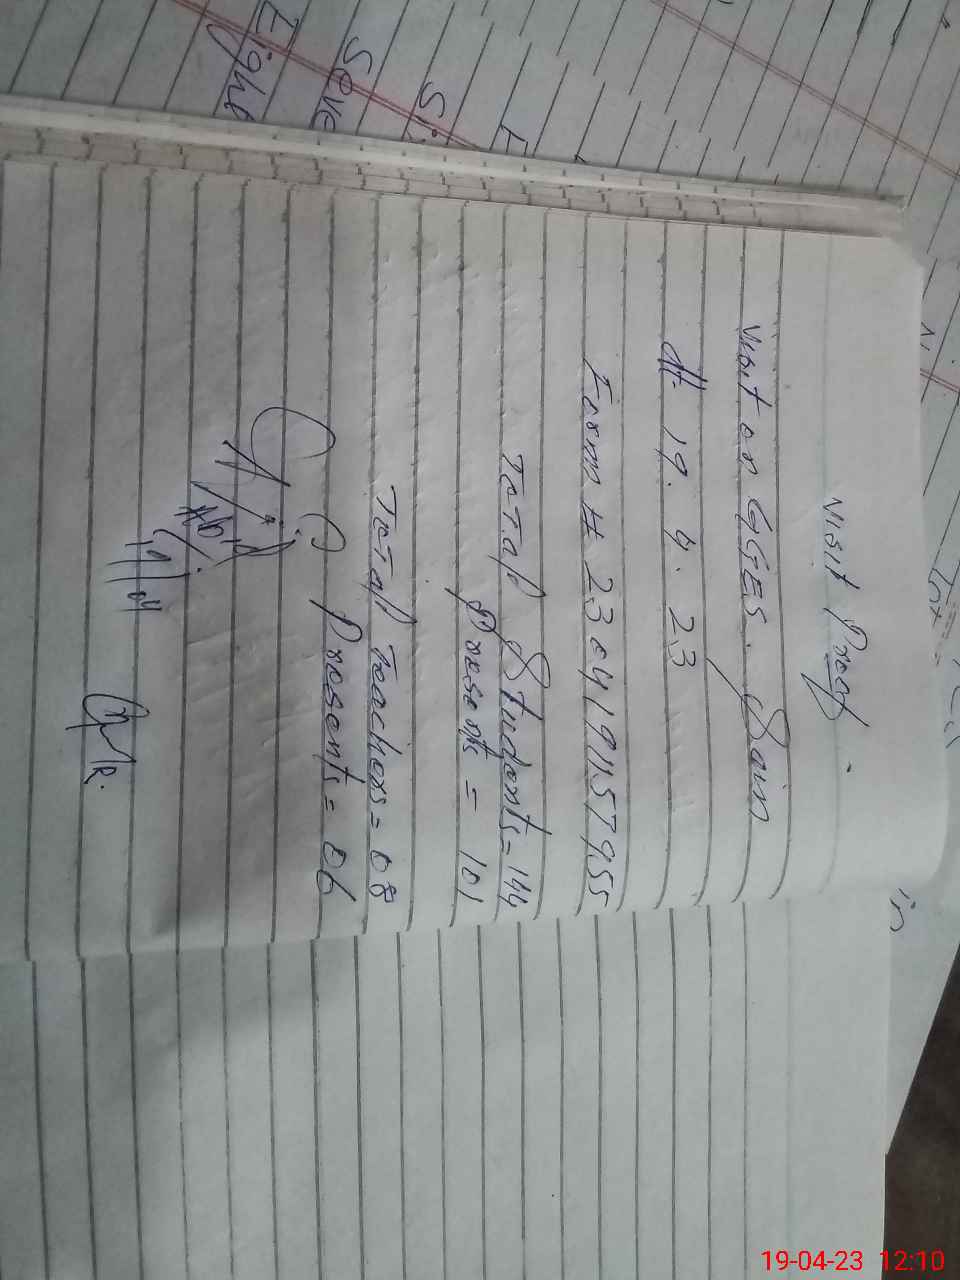 Visit Proof.
Visit on GGES. Sain
dt. 19. 4. 23
Form # 2304191157955
Total Students = 144
Presents = 101
Total Teachers = 08
Presents = 06
Abid
Eight
Seve
Si
in
19-04-23 12:10